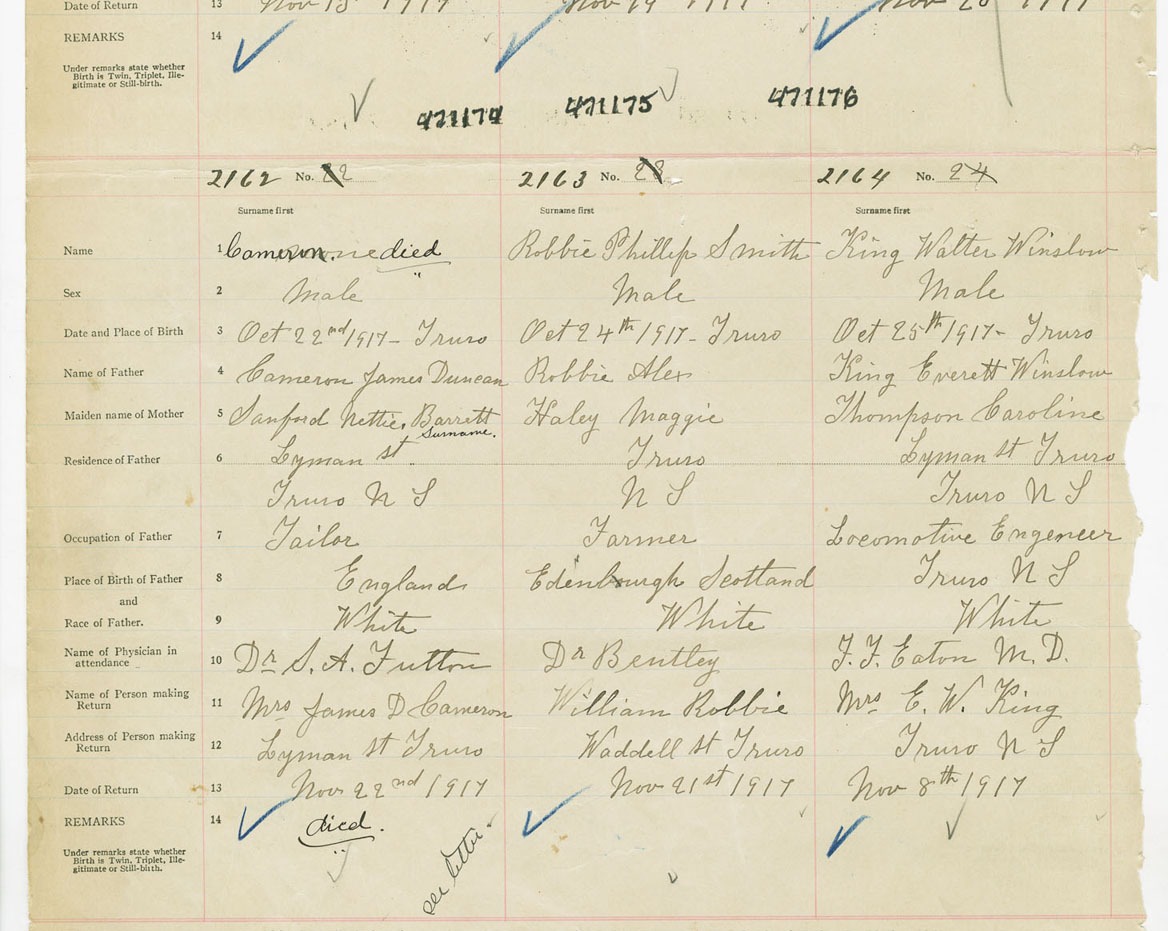 Date of Return 13 Nov 1917 Nov 19 1917 Nov 1917
REMARKS 14
Under remarks state whether
Birth is Twin, Triplet, Ille-
gitimate or Still-birth.
471174 471175 471176
2162 No. 22 2163 No. 23 2164 No. 24
Surname first Surname first Surname first
Name 1 Cameron. died Robbie Phillip Smith King Walter Winslow
Sex 2 Male Male Male
Date and Place of Birth 3 Oct 22nd 1917 - Truro Oct 24th 1917 - Truro Oct 25th 1917 - Truro
Name of Father 4 Cameron James Duncan Robbie Alex King Everett Winslow
Maiden name of Mother 5 Sanford Nettie, Barrett Haley Maggie Thompson Caroline
Surname.
Residence of Father 6 Lyman st Truro Lyman st Truro
Truro N S N S Truro N S
Occupation of Father 7 Tailor Farmer Locomotive Engeneer
Place of Birth of Father 8 England Edenburgh Scotland Truro N S
and
Race of Father. 9 White White White
Name of Physician in
attendance 10 Dr S. A. Fulton Dr Bentley F. F. Eaton M. D.
Name of Person making
Return 11 Mrs James D Cameron William Robbie Mrs E. W. King
Address of Person making
Return 12 Lyman st Truro Waddell st Truro Truro N S
Date of Return 13 Nov 22nd 1917 Nov 21st 1917 Nov 8th 1917
REMARKS 14 died.
see letter.
Under remarks state whether
Birth is Twin, Triplet, Ille-
gitimate or Still-birth.